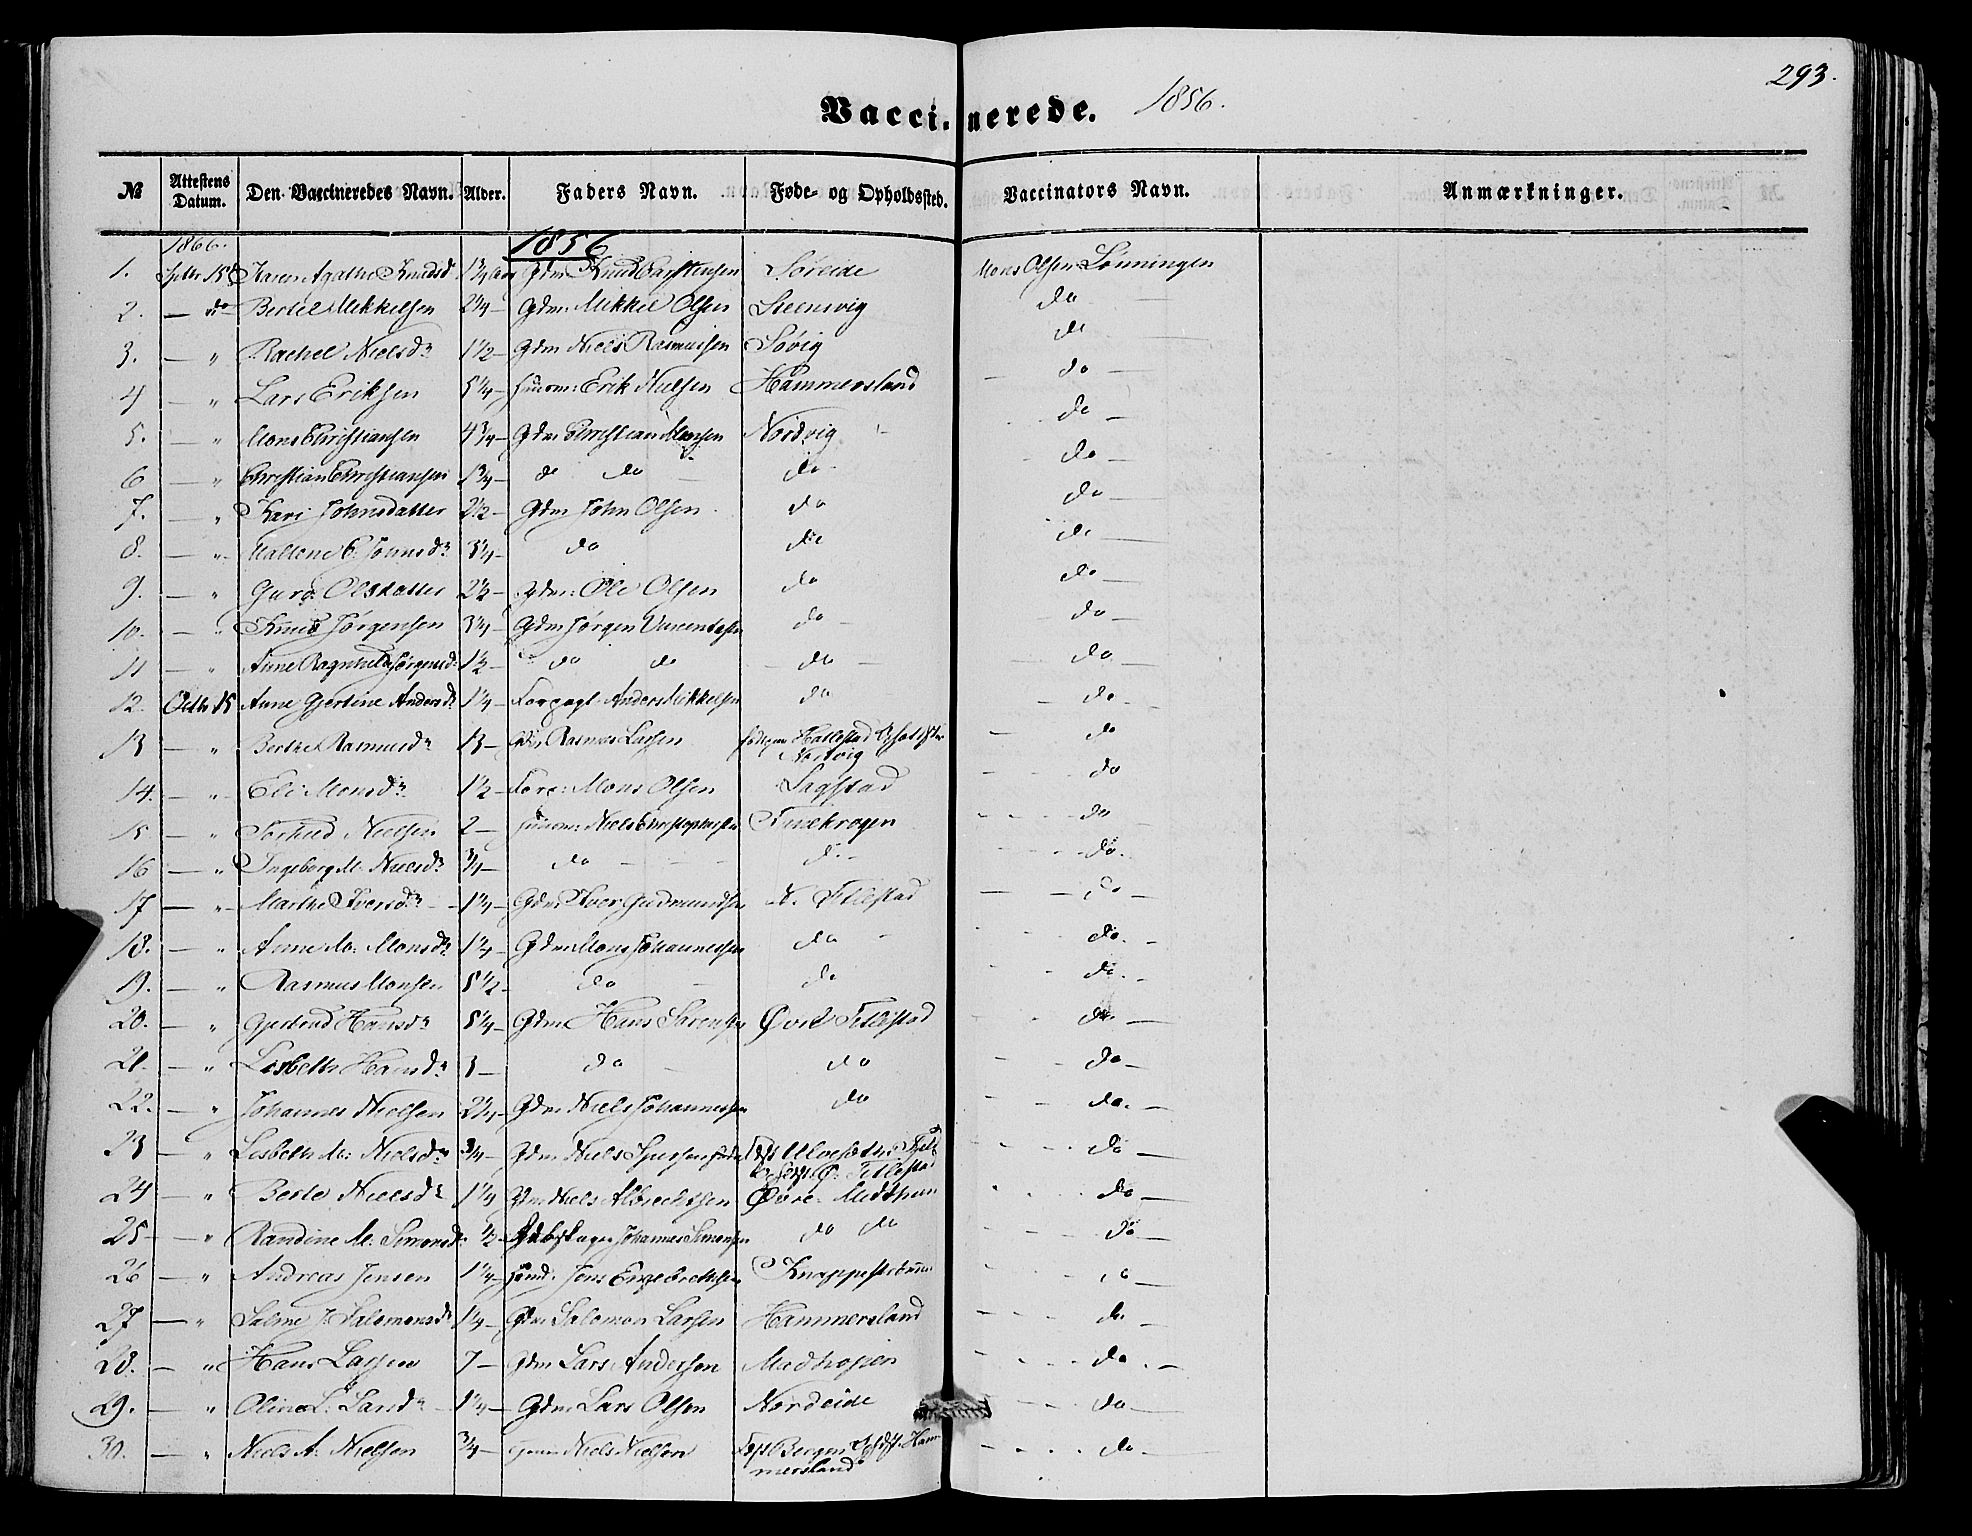 293.
Vaccinerede. 1856.
№ Attestens Datum. Den Vaccineredes Navn. Alder. Faders Navn. Føde- og Opholdssted. Vaccinators Navn. Anmærkninger.
1856
1. Septbr 15d Karen Agathe Knudsd 1 3/4 Aar Gdm Knud Carstensen Søreide Mons Olsen Lønningen
2. — do Bertel Mikkelsen 2 1/4 — Gdm: Mikkel Olsen Steensvig do —
3. — " Rachel Nielsdr 1 1/2 — Gdm Niels Rasmussen Søvig do —
4 — " Lars Eriksen 5 1/4 — Huusm: Erik Nielsen Hammersland — do —
5. — " Mons Christiansen 4 3/4 — Gdm Christian Monsen Nordvig do —
6 — " Christian Christiansen 1 3/4 — do do do — do —
7. — " Kari Johnsdatter 2 1/2 — Gdm John Olsen do do —
8. — " C. Johnsdr 3/4 — do do do —
9. — " Guro Olsdatter 2 1/2 — Gdm: Ole Olsen do do —
10. — " Knud Jørgensen 3 1/4 — Gdm Jørgen do — do —
11 — " Anne Ragnhild Jørgensd 1 1/2 — do do do — do —
12. Octbr 15 Anne Gjertine Andersdr 1 1/4 — Forpagt. Anders Mikkelsen do do —
13 — " Berthe Rasmusdr 13 — Gdm Rasmus Larsen Hatlestad
Nordvig — do
14. — " Eli Monsdr 1 1/2 — Forp: Mons Olsen Sagstad do
15 — " Nielsen 2 — Huusm: Niels Christophersen do
16 — " Ingeborg M. Nielsdr 3/4 — do — do — do.
17 — " Marthe Iversdr 1 1/4 — Gdm Iver Gudmundsen N. Titlestad — do —
18. — " Anne M: Monsdr 1 1/4 — Gdm Mons Johannessen do do —
19. — " Rasmus Monsen 5 1/2 — do do do —
20. — " Gjertrud Hansdr 5 1/4 — Gdm Hans Sørensen Øvre Titlestad do —
21. — " Lisbeth Hansdr 3 — do do do —
22. — " Johannes Nielsen 2 1/4 — Gdm Niels Johannessen do do —
23 — " Lisbeth M: Nielsdr 3/4 — Gdm Niels
Ø. Titlestad do —
24 — " Berte Nielsdr 1 1/4 Gdm Niels Albrechtsen Øvre Midthun do —
25 — " Randine M. Simonsd 1/2 — Johannes Simonsen do do do —
26 — " Andreas Jensen 1 1/4 — Jens Engebretsen do —
27 — " Salomonsdr 1 1/4 — Gdm Salomon Larsen Hammersland do —
28. — " Hans Larsen 7 — Gdm Lars Andersen Midhopen do —
29. — " Oline L. Larsdr 1 1/4 — Gdm Lars Olsen Nordeide do —
30. — " Niels A. Nielsen 3/4 — Niels Nielsen Fdst Bergen Opholdst. Ham-
mersland do —